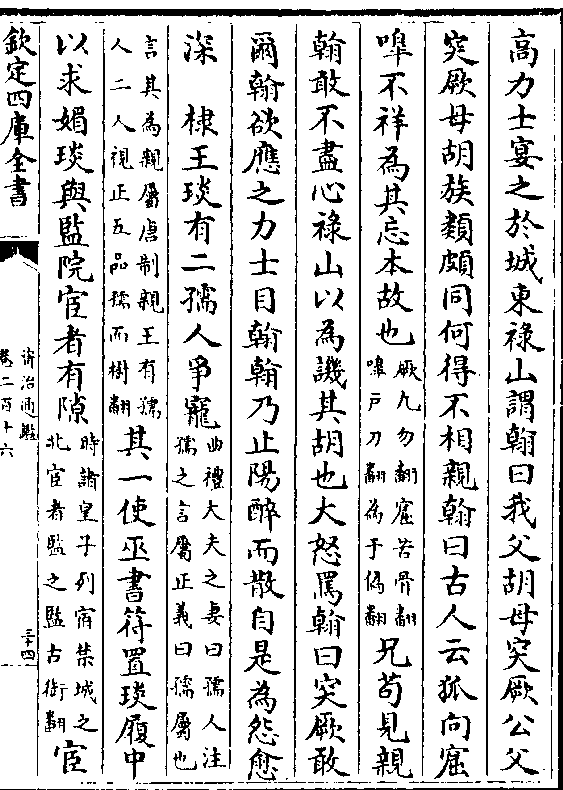 高力士宴之於城東祿山謂翰曰我父胡母突厥公父
突厥母胡族類頗同何得不相親翰曰古人云狐向窟
嘷不祥為其忘本故也厥九勿翻窟苦骨翻嘷戶刀翻為于偽翻兄苟見親
翰敢不盡心祿山以為譏其胡也大怒罵翰曰突厥敢
爾翰欲應之力士目翰翰乃止陽醉而散自是為怨愈
深　棣王琰有二孺人爭寵曲禮大夫之妻曰孺人注孺之言屬正義曰孺屬也
言其為親屬唐制親王有孺人二人視正五品孺而樹翻其一使巫書符置琰履中
以求媚琰與監院宦者有隙時諸皇子列宿禁城之北宦者監之監古銜翻宦
欽定四庫全書
資治通鑑
卷二百十六
三十四